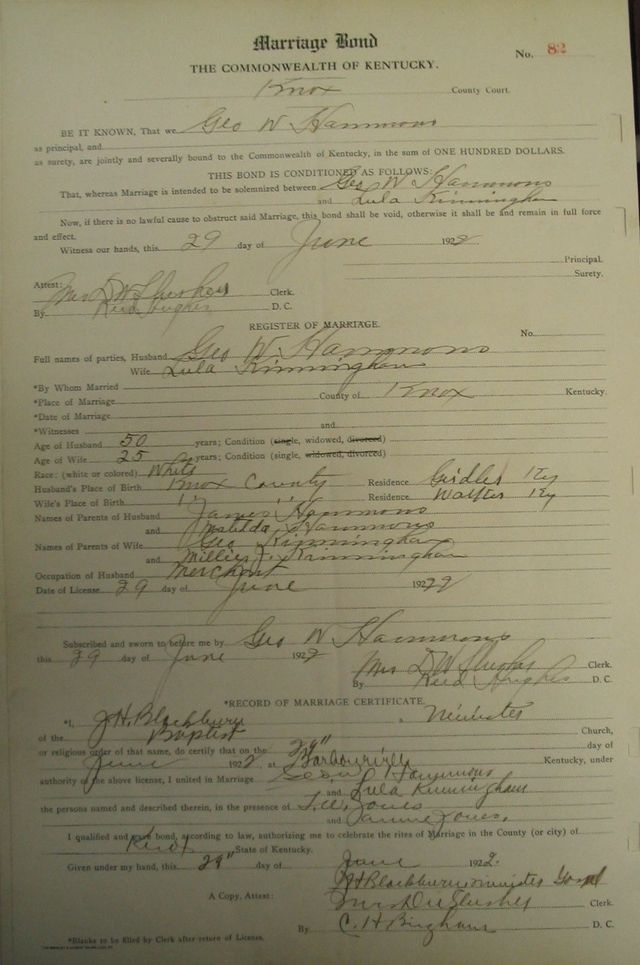 Marriage Bond
No. 82
THE COMMONWEALTH OF KENTUCKY.
Knox County Court.
BE IT KNOWN, That we Geo W Hammons
as principal, and
as surety, are jointly and severally bound to the Commonwealth of Kentucky, in the sum of ONE HUNDRED DOLLARS.
THIS BOND IS CONDITIONED AS FOLLOWS:
That, whereas Marriage is intended to be solemnized between Geo W Hammons
and Lula Kinningham
Now, if there is no lawful cause to obstruct said Marriage, this bond shall be void, otherwise it shall be and remain in full force
and effect.
Witness our hands, this 29 day of June 1922
Principal.
Surety.
Attest:
Mrs D W Slusher Clerk.
By Reed Hughes D. C.
REGISTER OF MARRIAGE.
No.
Full names of parties, Husband Geo W. Hammons
Wife Lula Kinningham
*By Whom Married
*Place of Marriage County of Knox Kentucky.
*Date of Marriage
*Witnesses and
Age of Husband 50 years; Condition (single, widowed, divorced)
Age of Wife 25 years; Condition (single, widowed, divorced)
Race: (white or colored) White
Husband's Place of Birth Knox County Residence Girdler Ky
Wife's Place of Birth " " Residence Walker Ky
Names of Parents of Husband James Hammons
and Matilda Hammons
Names of Parents of Wife Geo Kinningham
and Millie Kinningham
Occupation of Husband Merchant
Date of License 29 day of June 1922
Subscribed and sworn to before me by Geo W Hammons
this 29 day of June 1922
Mrs D W Slusher Clerk.
By Reed Hughes D. C.
*RECORD OF MARRIAGE CERTIFICATE.
*I, J H. Blackburn a Minister
of the Baptist Church,
or religious order of that name, do certify that on the 29" day of
June 1922 at Barbourville Kentucky, under
authority of the above license, I united in Marriage Geo. W Hammons
and Lula Kinningham
the persons named and described therein, in the presence of Jones
and Jones.
I qualified and gave bond, according to law, authorizing me to celebrate the rites of Marriage in the County (or city) of
Knox State of Kentucky.
Given under my hand, this 29" day of June 1922.
J H Blackburn minister
A Copy, Attest: Mrs D W Slusher Clerk.
By C. H Bingham D. C.
*Blanks to be filled by Clerk after return of License.